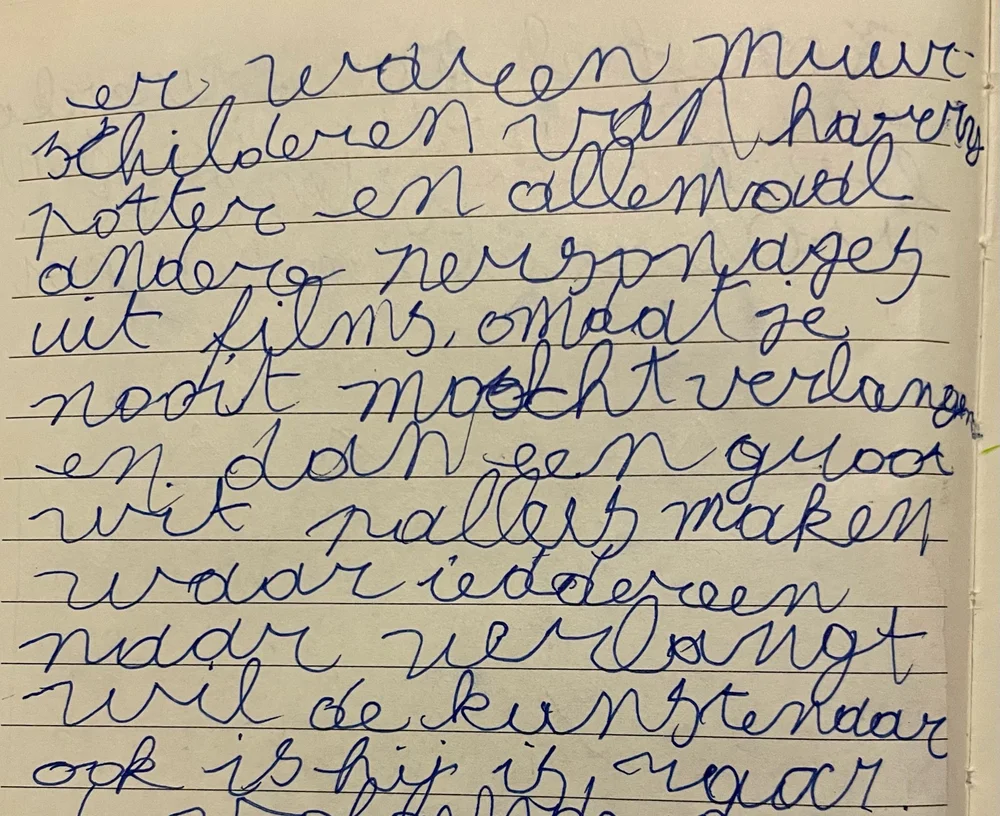 er waren muur
schilderen van harry
potter en allemaal
andere personages
uit films, omdat je
nooit mocht verlangen
en dan een groot
wit palleis maken
waar ieddereen
naar verlangt
wil de kunstenaar
ook is hij is raar.